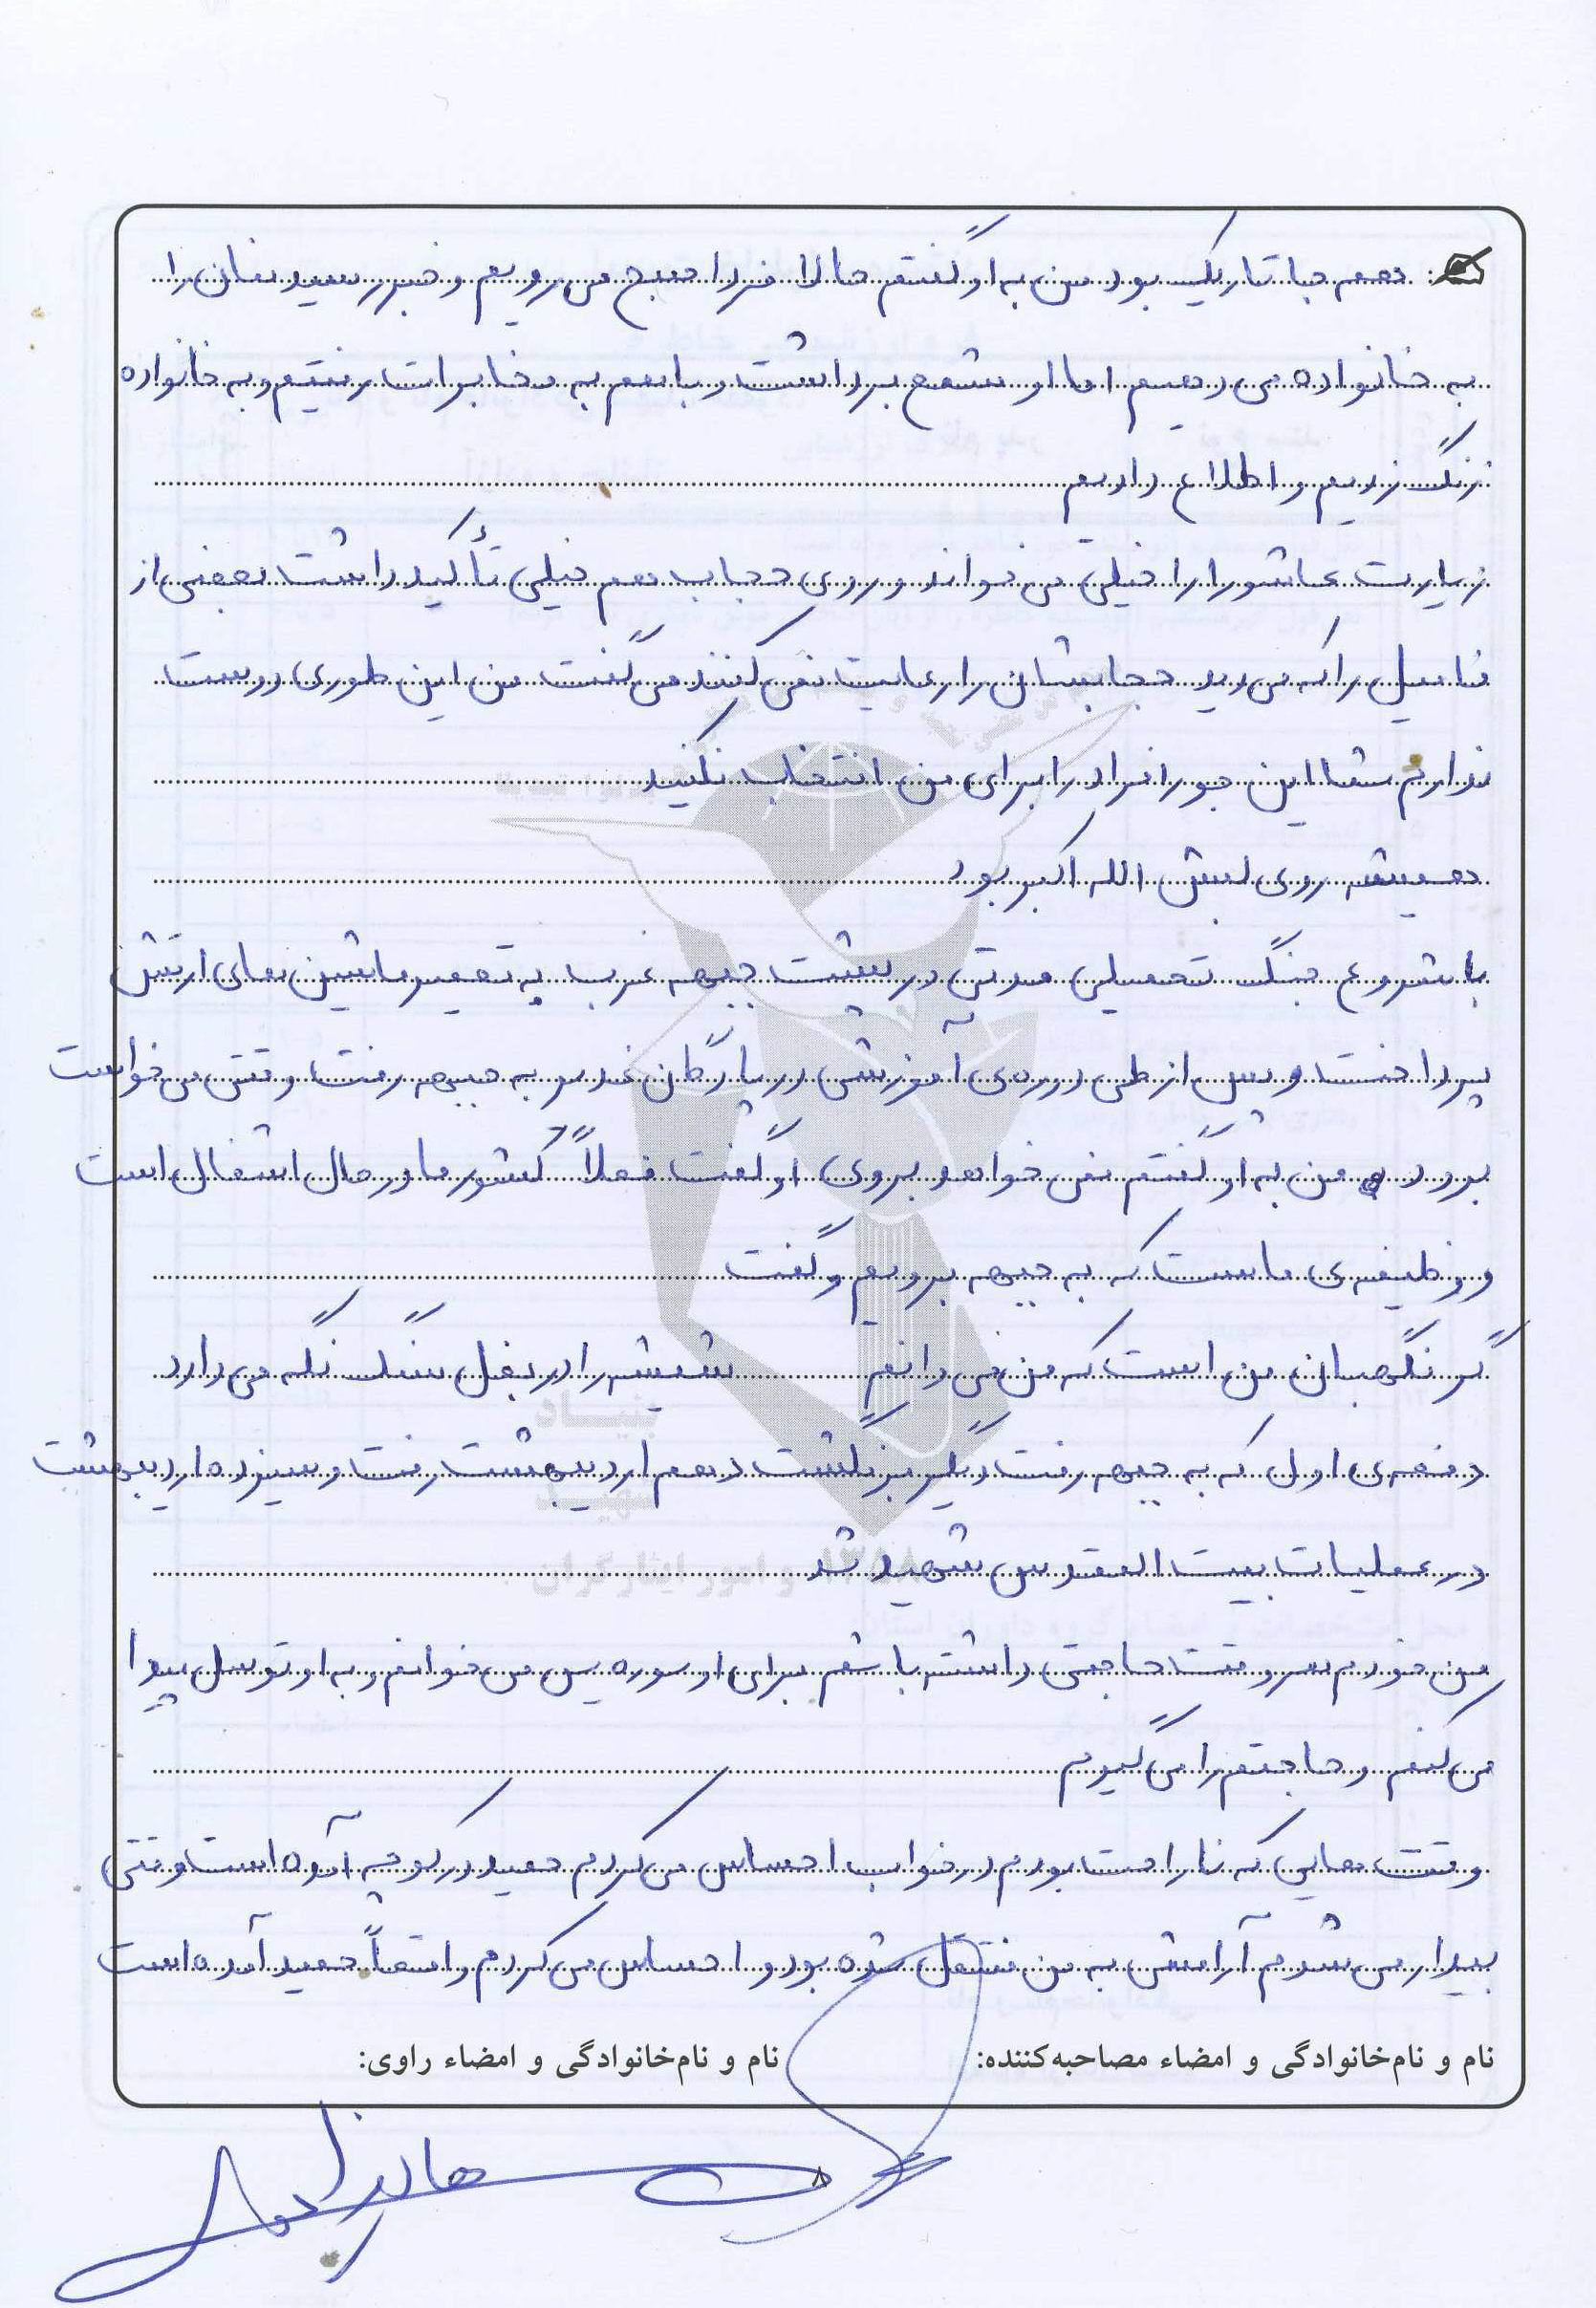 همه جا تاریک بود من به او گفتم حالا فردا صبح می رویم و خبر رسیدنمان را
به خانواده می دهیم اما او شمع برداشت و با هم به مخابرات رفتیم و به خانواده
زنگ زدیم و اطلاع دادیم
زیارت عاشورا را خیلی می خواند و روی حجاب هم خیلی تأکید داشت بعضی از
فامیل را که می دید حجابشان را رعایت نمی کنند می گفت من این طوری دوست
ندارم شما این جور افراد را برای من انتخاب نکنید
همیشه روی لبش الله اکبر بود
با شروع جنگ تحمیلی مدتی در پشت جبهه غرب به تعمیر ماشین های ارتش
پرداخت و پس از طی دوره ی آموزشی در پادگان غدیر به جبهه رفت وقتی می خواست
برود من به او گفتم نمی خواهد بروی او گفت فعلاً کشور ما در حال اشغال است
و وظیفه ی ماست که به جبهه برویم و گفت
گر نگهبان من است که من می دانم شیشه را در بغل سنگ نگه می دارد
دفعه ی اول که به جبهه رفت دیگر برنگشت دهم اردیبهشت رفت و سیزده اردیبهشت
در عملیات بیت المقدس شهید شد
من خودم هر وقت حاجتی داشته باشم برای او سوره یس می خوانم و به او توسل پیدا
می کنم و حاجتم را می گیرم
وقت هایی که ناراحت بودم در خواب احساس می کردم حمید در کوچه آمده است وقتی
بیدار می شدم آرامش به من منتقل شده بود و احساس می کردم واقعاً حمید آمده است
نام و نام‌خانوادگی و امضاء مصاحبه‌کننده: نام و نام‌خانوادگی و امضاء راوی:
بنیاد
شهید
و امور ایثارگران